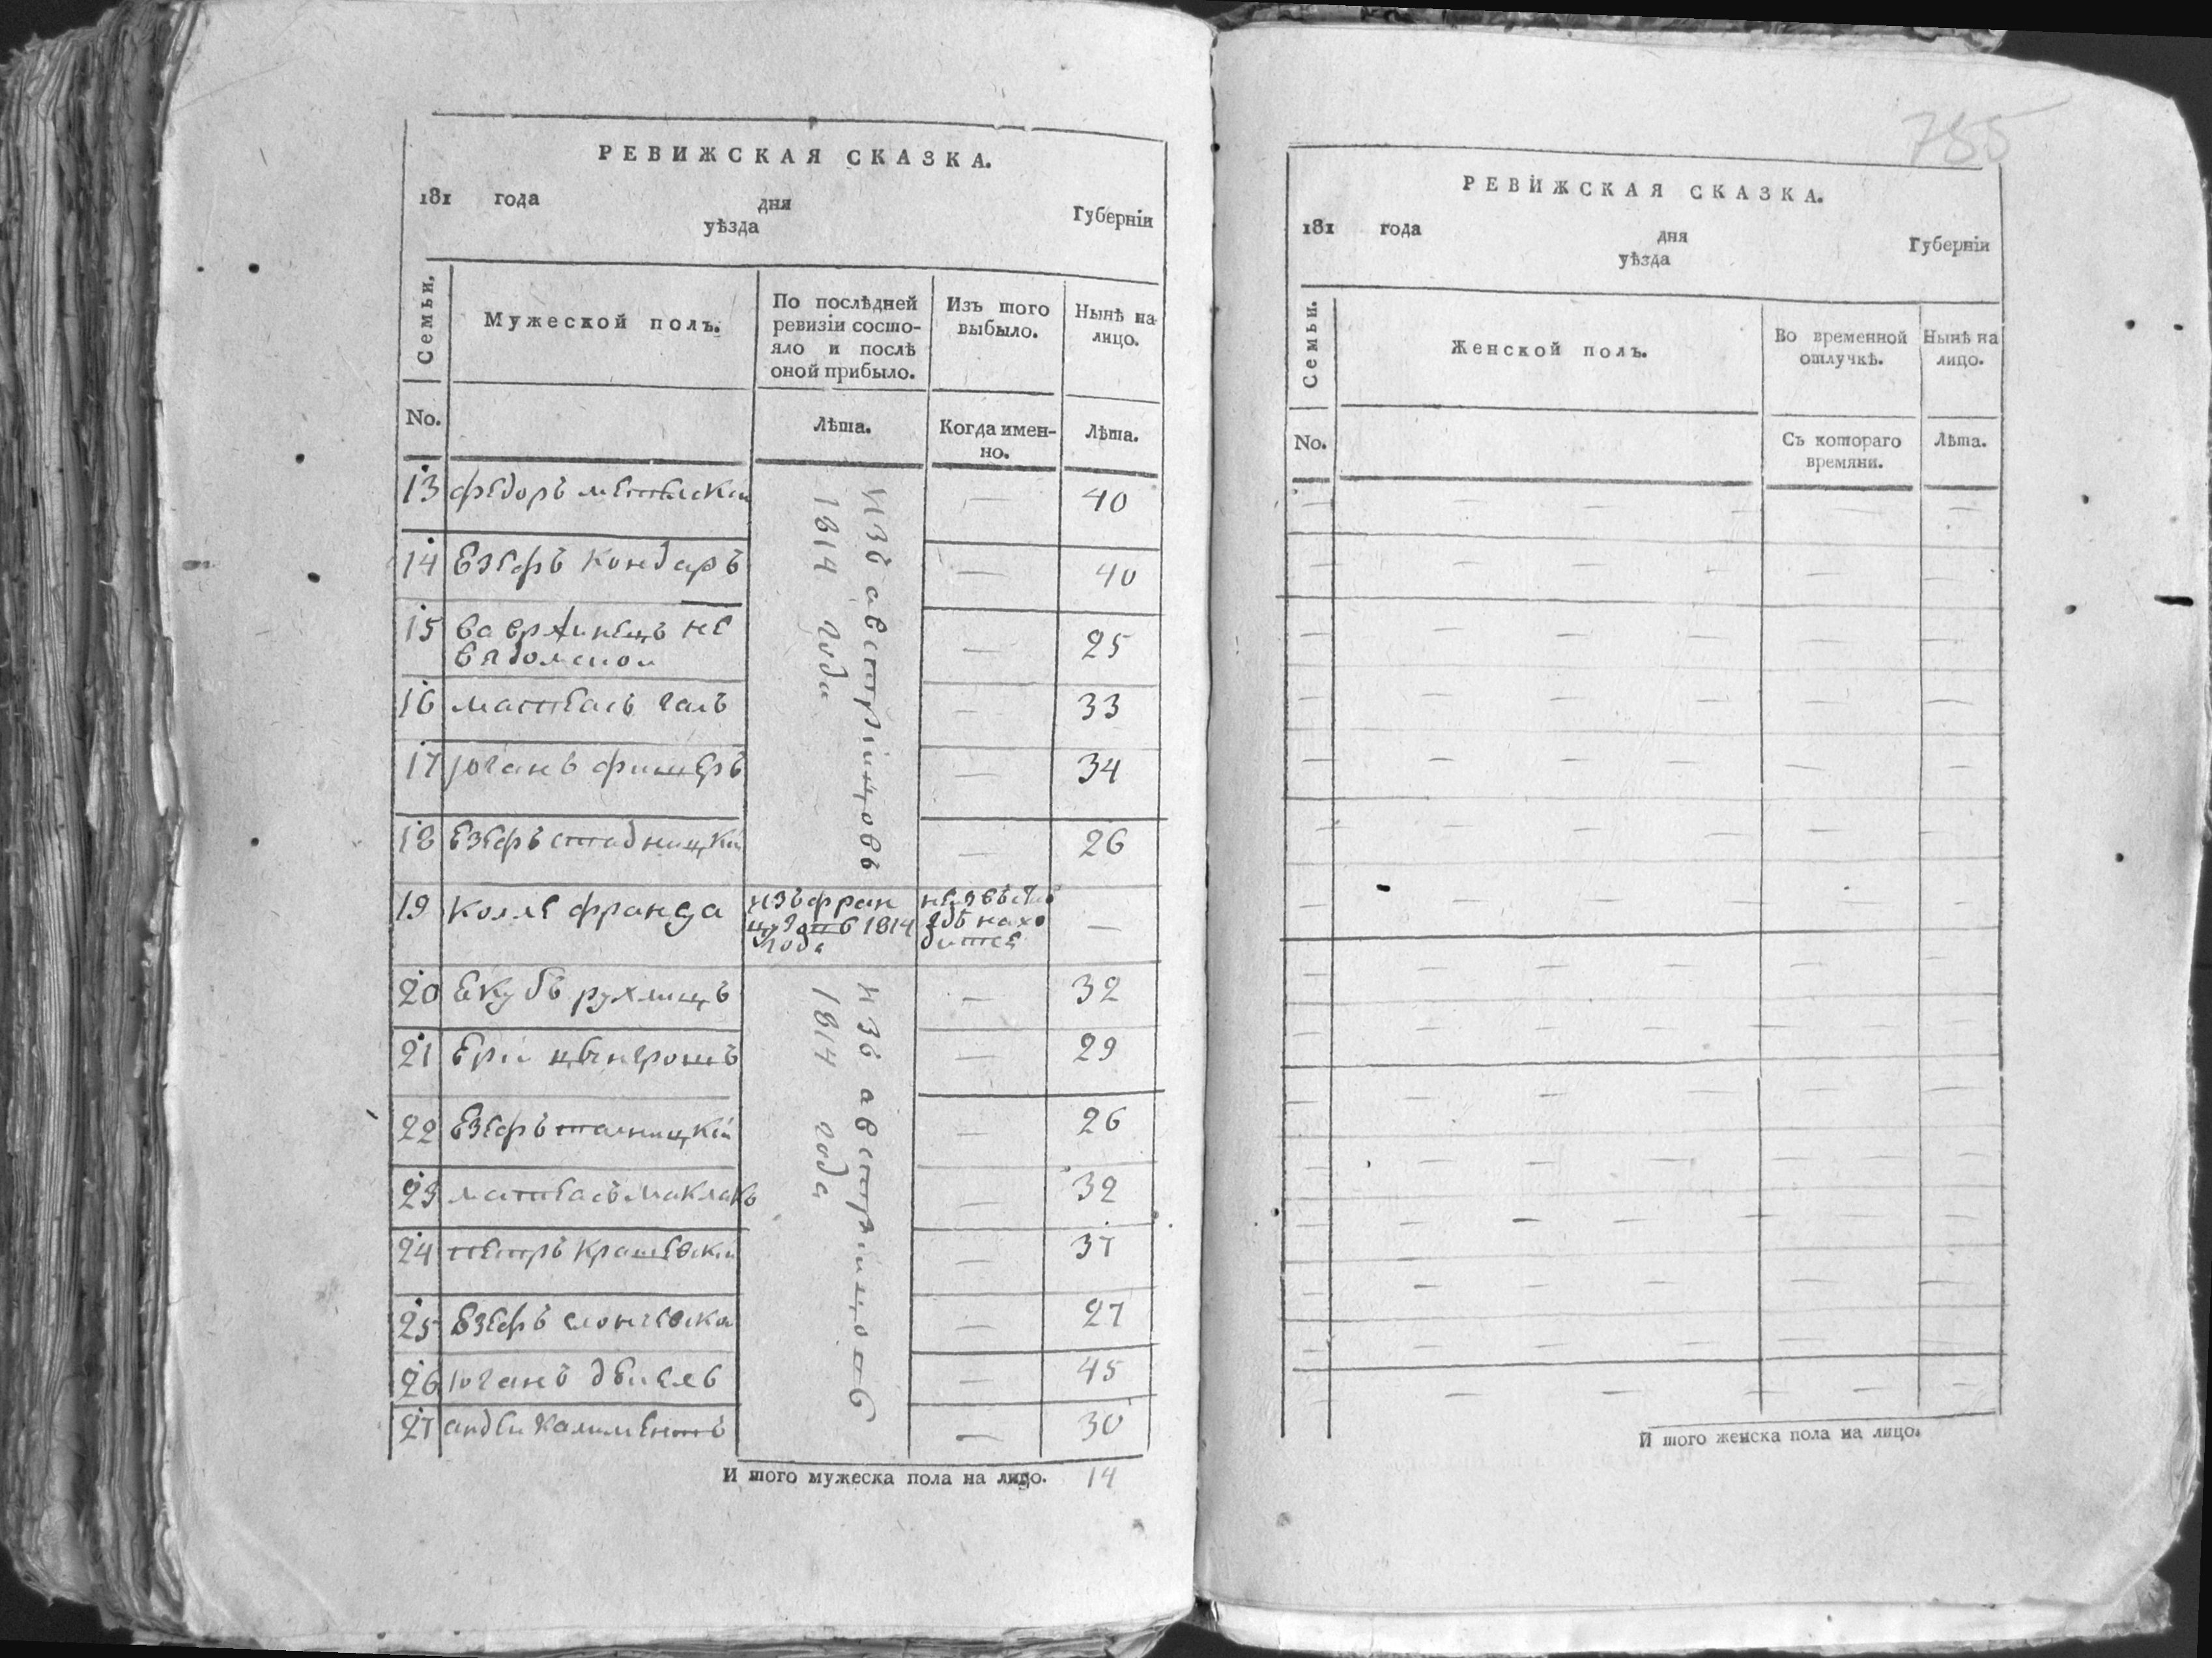 РЕВИЖСКАЯ СКАЗКА.
181 года дня
уѣзда Губерніи
Семьи.
Мужеской полъ.
По послѣдней ревизіи состо-яло и послѣ оной прибыло.
Изъ того выбыло.
Нынѣ на лицо.
No. Лѣта. Когда имен-но. Лѣта.
13 федоръ — 40
14 Езефъ Кондаръ — 40
15 не
вядомском — 25
16 матвась галъ — 33
17 юганъ фишеръ — 34
18 Езефъ стадницкій — 26
изъ австрійцовъ
1814 года
19 колле франца изъ фран 1814 года где нахо дитса —
20 Екубъ рухлицъ — 32
21 — 29
22 Езефъ талницкій — 26
23 матвасъ маклакъ — 32
24 петръ крашевскій — 37
25 Езефъ — 27
26 юганъ — 45
27 — 30
изъ австрійцовъ
1814 года
И того мужеска пола на лицо. 14
785
РЕВИЖСКАЯ СКАЗКА.
181 года дня
уѣзда Губерніи
Семьи.
Женской полъ.
Во временной отлучкѣ.
Нынѣ на лицо.
No. Съ котораго времяни. Лѣта.
И того женска пола на лицо.